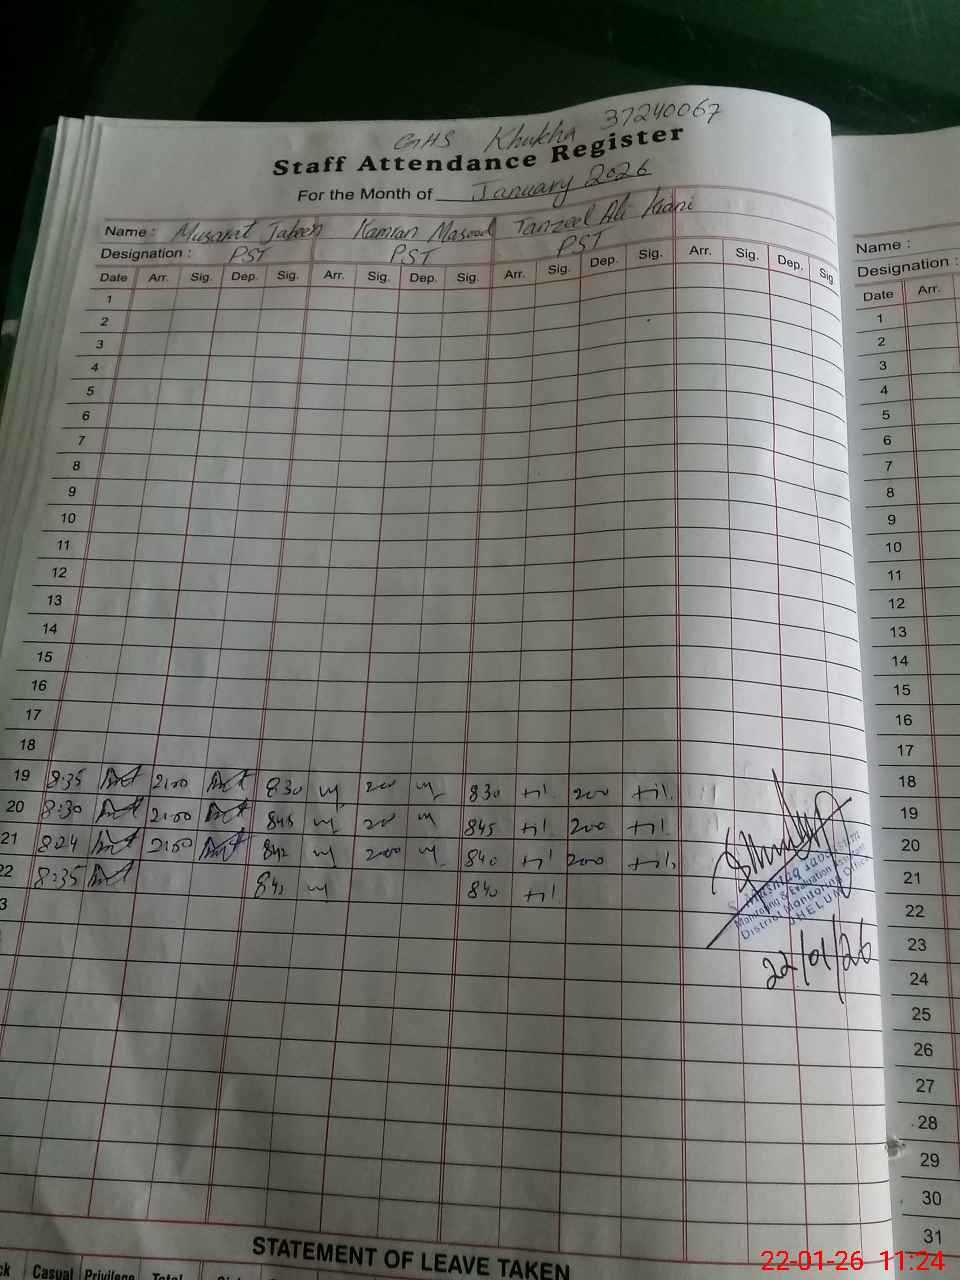 GHS Khukha 37240067
Staff Attendance Register
For the Month of January 2026
Name : Musarat Jabeen Kamran Masood Tanzeel Ali Kiani
Designation : PST PST PST
Date Arr. Sig. Dep. Sig. Arr. Sig. Dep. Sig. Arr. Sig. Dep. Sig. Arr. Sig. Dep. Sig
1
2
3
4
5
6
7
8
9
10
11
12
13
14
15
16
17
18
19 8:35 2:00 830 200 830 200
20 8:30 2:00 845 200 845 200
21 8:24 2:00 842 2000 840 200
22 8:35 845 840
3
Monitoring & Evaluation Assistant
District Monitoring Office
JHELUM
22/01/26
STATEMENT OF LEAVE TAKEN
ck Casual Privilege Total
Name :
Designation :
Date Arr.
1
2
3
4
5
6
7
8
9
10
11
12
13
14
15
16
17
18
19
20
21
22
23
24
25
26
27
28
29
30
31
22-01-26 11:24